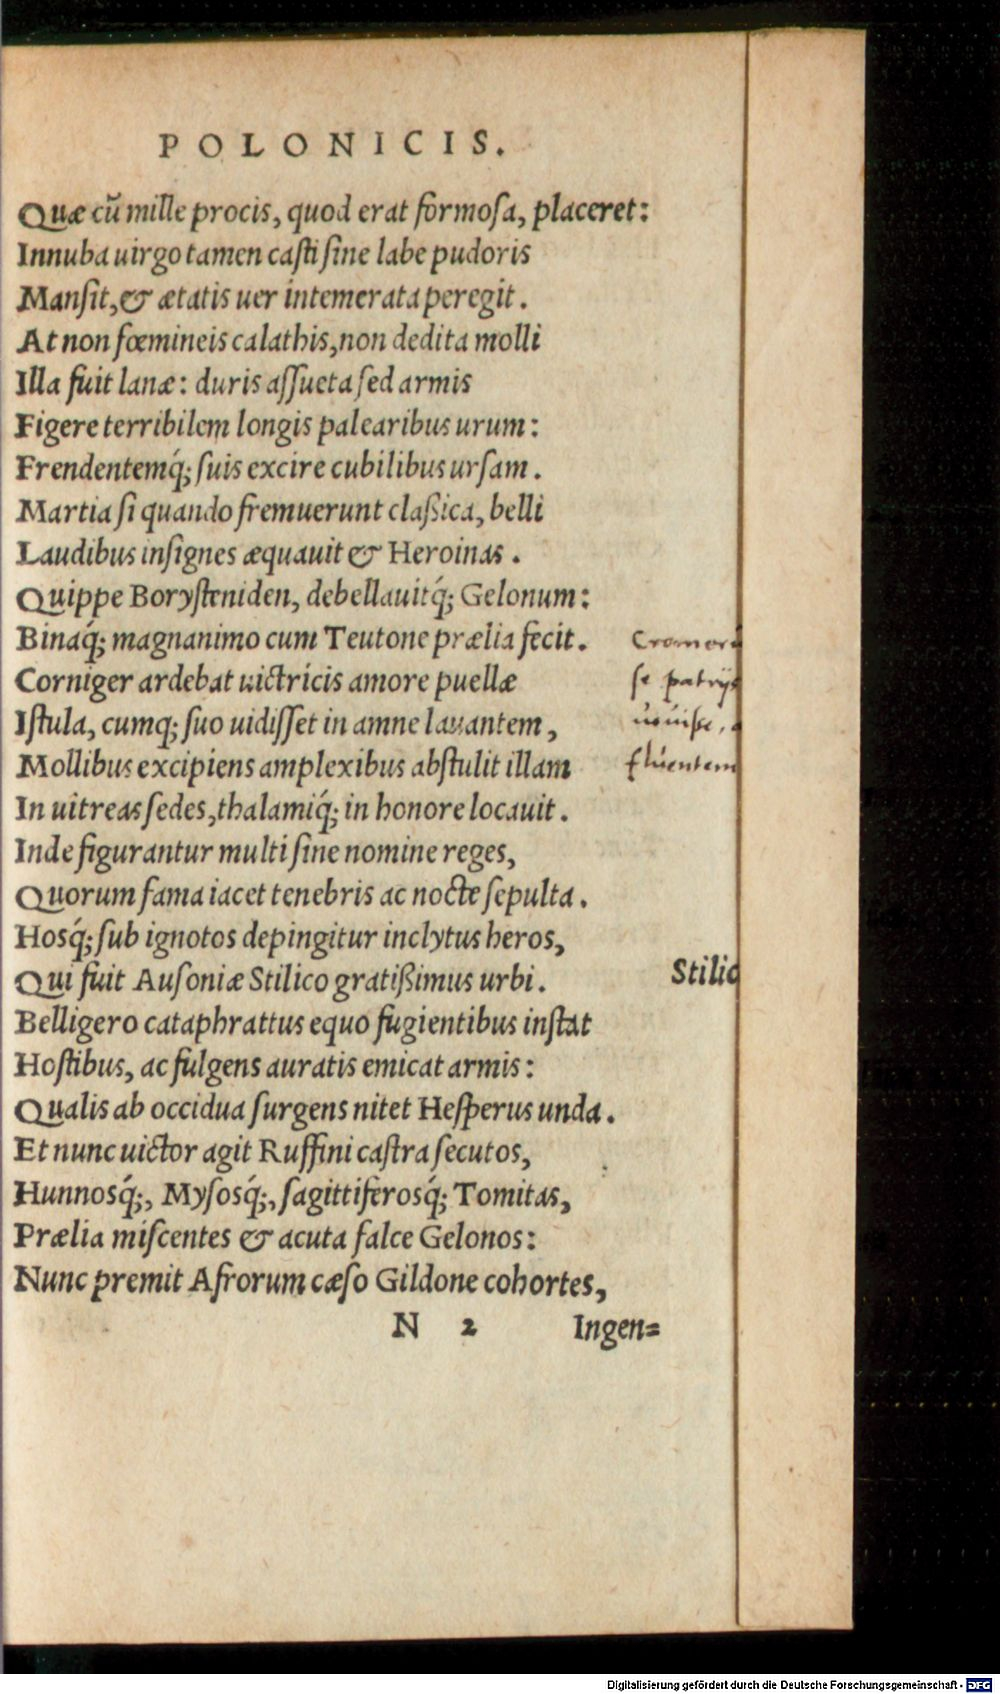 POLONICIS.
Quæ cũ mille procis, quod erat formoſa, placeret:
Innuba uirgo tamen caſti ſine labe pudoris
Manſit, & ætatis uer intemerata peregit.
At non fœmineis calathis, non dedita molli
Illa fuit lanæ: duris aſſueta ſed armis
Figere terribilem longis palearibus urum:
Frendentemq́; ſuis excire cubilibus urſam.
Martia ſi quando fremuerunt claßica, belli
Laudibus inſignes æquauit & Heroinas.
Quippe Boryſteniden, debellauitq́; Gelonum:
Binaq́; magnanimo cum Teutone prælia fecit.
Cromer
Corniger ardebat uictricis amore puellæ
ſe patrijs
Iſtula, cumq; ſuo uidiſſet in amne lauantem,
Mollibus excipiens amplexibus abſtulit illam
fluentem
In uitreas ſedes, thalamiq́; in honore locauit.
Inde figurantur multi ſine nomine reges,
Quorum fama iacet tenebris ac nocte ſepulta.
Hosq́; ſub ignotos depingitur inclytus heros,
Qui fuit Auſoniæ Stilico gratißimus urbi.
Stilic
Belligero cataphrattus equo fugientibus inſtat
Hoſtibus, ac fulgens auratis emicat armis:
Qualis ab occidua ſurgens nitet Heſperus unda.
Et nunc uictor agit Ruffini caſtra ſecutos,
Hunnosq́;, Myſosq́;, ſagittiferosq́; Tomitas,
Prælia miſcentes & acuta falce Gelonos:
Nunc premit Afrorum cæſo Gildone cohortes,
N 2 Ingen=
Digitalisierung gefördert durch die Deutsche Forschungsgemeinschaft - DFG